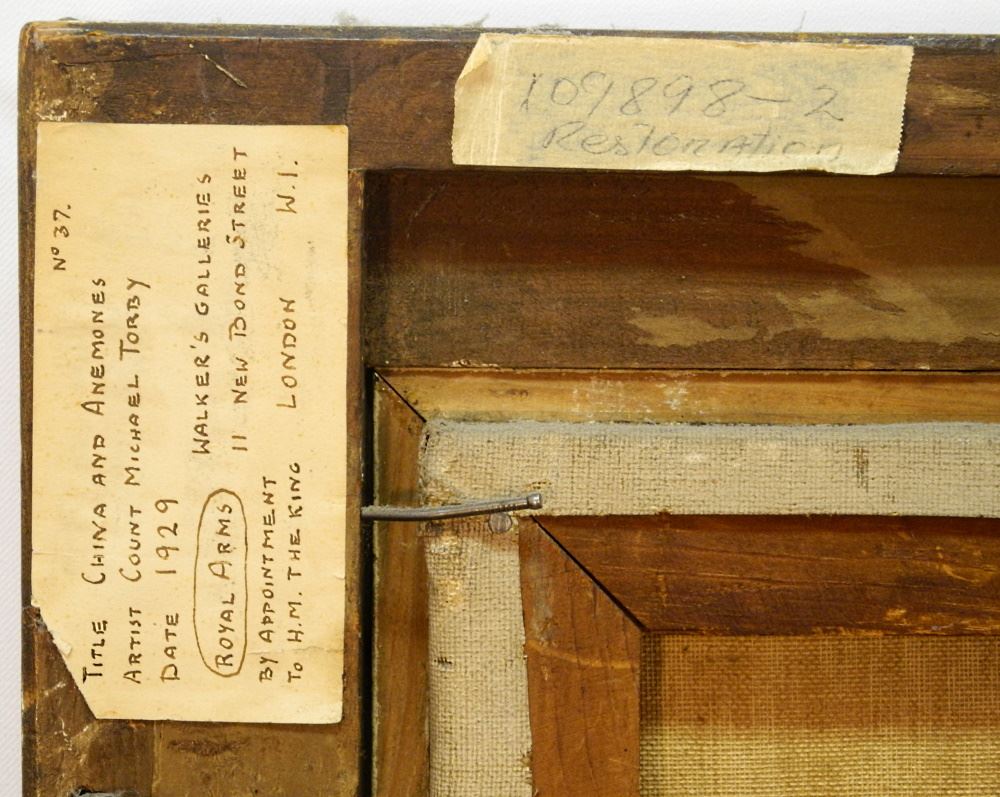 Nº 37.
TITLE CHINA AND ANEMONES
ARTIST COUNT MICHAEL TORBY
DATE 1929
WALKER'S GALLERIES
ROYAL ARMS
11 NEW BOND STREET
BY APPOINTMENT
TO H.M. THE KING LONDON W.1.
109898-2
Restoration